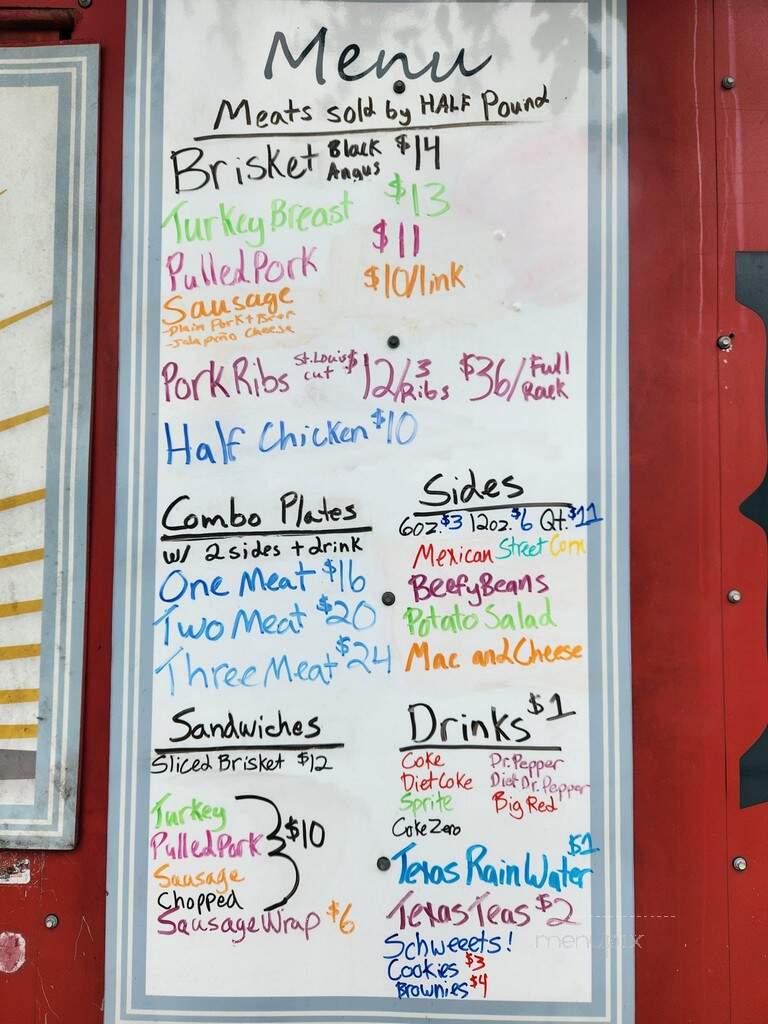 Menu
Meats sold by HALF Pound
Brisket Black Angus $14
Turkey Breast $13
Pulled Pork $11
Sausage $10/link
-Plain Pork + Beef
-Jalapeño Cheese
Pork Ribs St. Louis cut $12/3 Ribs $36/Full Rack
Half Chicken $10
Combo Plates
w/ 2 sides + drink
One Meat $16
Two Meat $20
Three Meat $24
Sides
6oz. $3 12oz. $6 Qt. $11
Mexican Street Corn
Beefy Beans
Potato Salad
Mac and Cheese
Sandwiches
Sliced Brisket $12
Turkey
Pulled Pork $10
Sausage
Chopped
Sausage Wrap $6
Drinks $1
Coke Dr. Pepper
Diet Coke Diet Dr. Pepper
Sprite Big Red
Coke Zero
Texas Rain Water $1
Texas Teas $2
Schweeets!
Cookies $3
Brownies $4
menupix